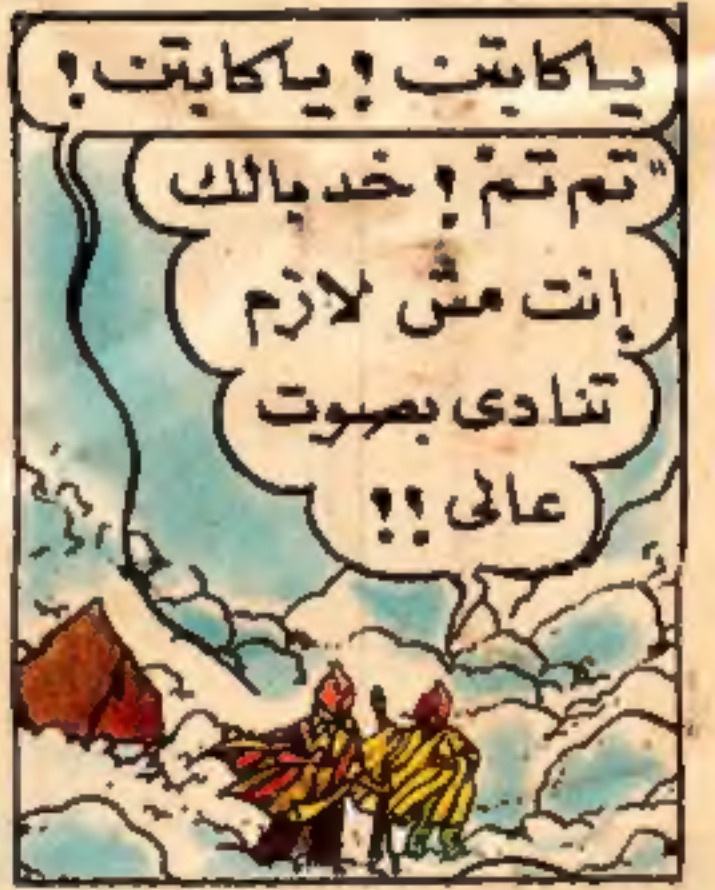 ياكابتن ! ياكابتن !
"تم تم ! خد بالك
إنت مش لازم
تنادى بصوت
عالى !!